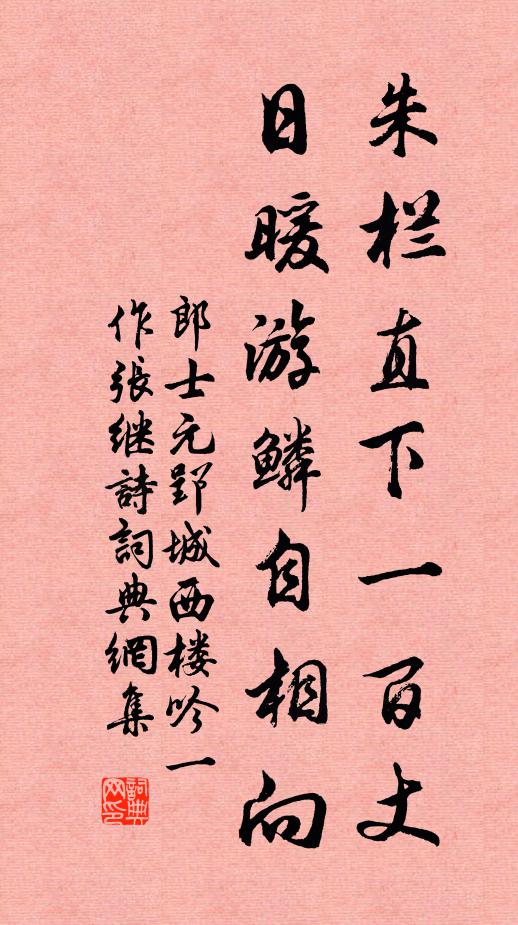 朱栏直下一百丈
日暖游鳞自相向
郎士元郢城西楼吟一
作張继詩詞典網集
詞典
网印